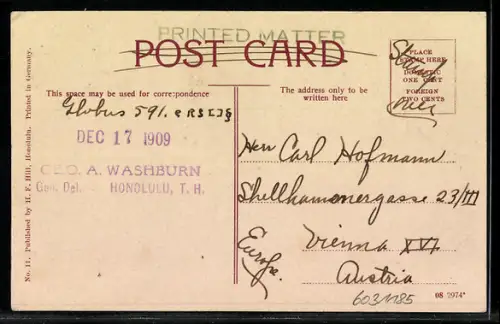 PRINTED MATTER
POST CARD
PLACE
STAMP HERE
DOMESTIC
ONE CENT
FOREIGN
TWO CENTS
Stamp
over
This space may be used for correspondence
The address only to be
written here
Globus 591.
DEC 17 1909
GEO. A. WASHBURN
Gen. Del. HONOLULU, T. H.
Herr Carl Hofmann
Shellhamonergasse 23/III
Vienna XVI
Austria
Europa.
6031185
08 2974*
No. 11. Published by H. F. Hill, Honolulu. Printed in Germany.